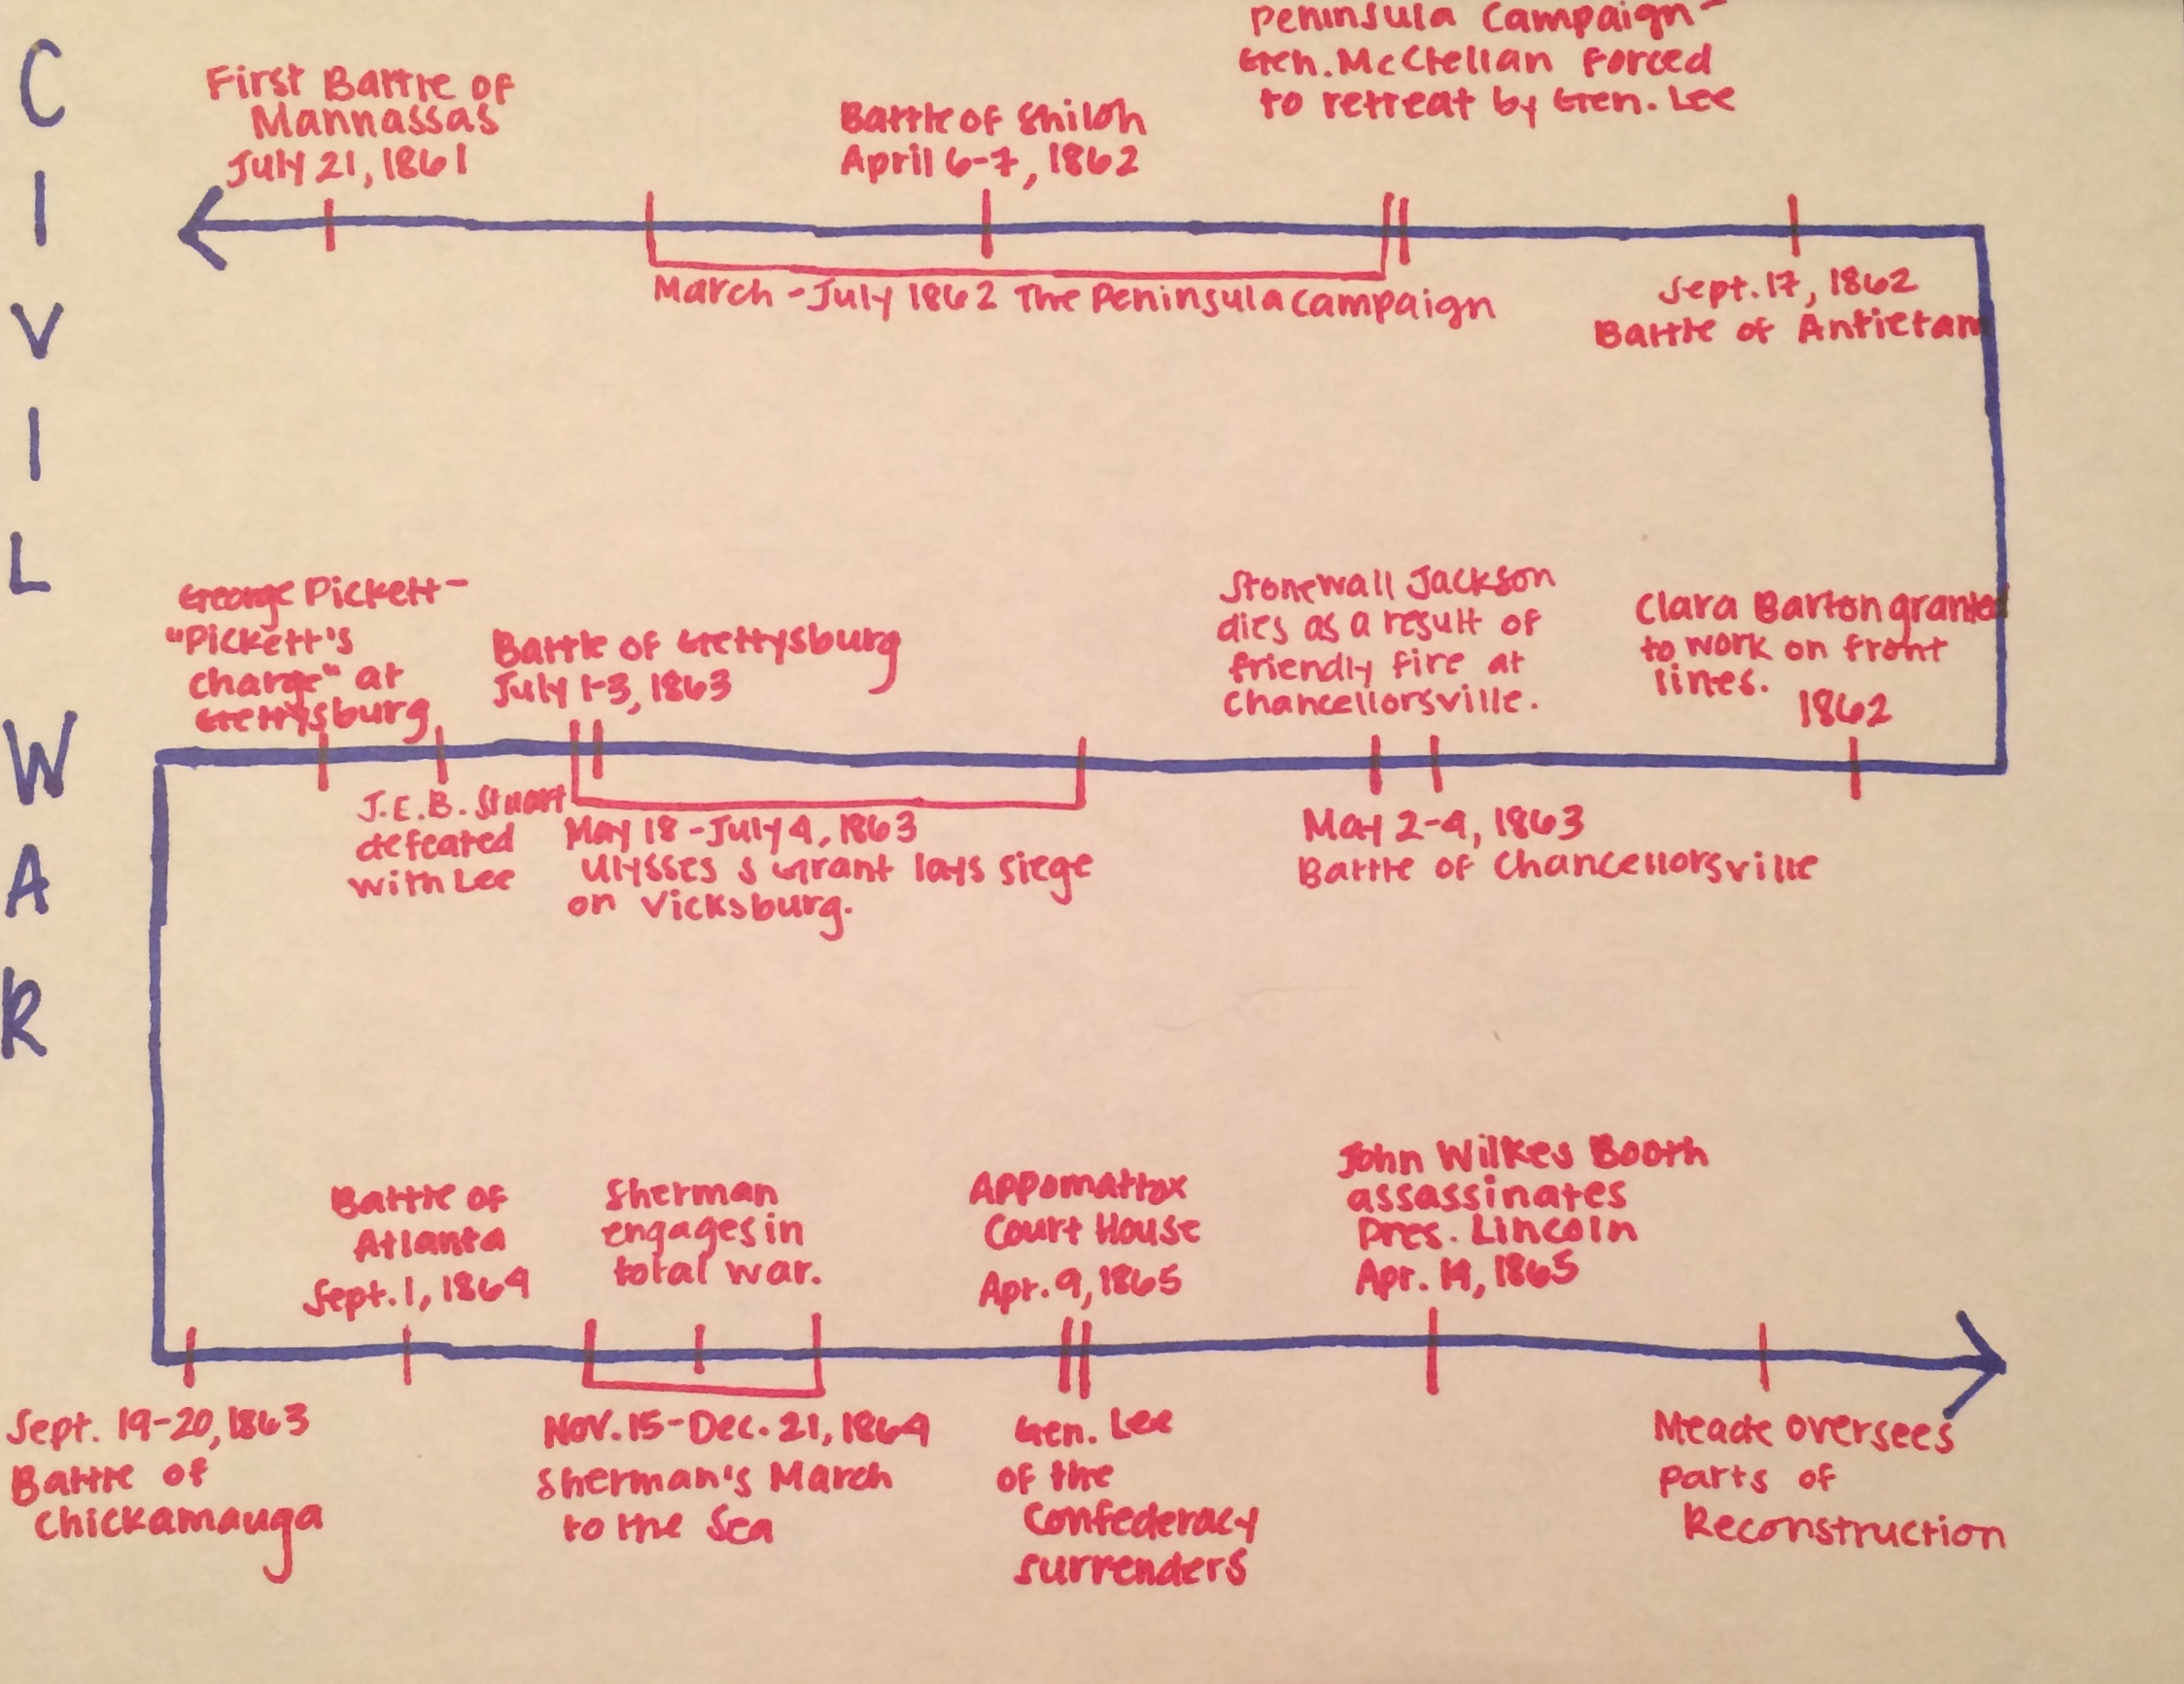 CIVIL WAR
First Battle of
Mannassas
July 21, 1861
Battle of Shiloh
April 6-7, 1862
Peninsula Campaign-
Gen. McClellan forced
to retreat by Gen. Lee
March - July 1862 The Peninsula campaign
Sept. 17, 1862
Battle of Antietam
Clara Barton granted
to work on front
lines.
1862
Stonewall Jackson
dies as a result of
friendly fire at
Chancellorsville.
May 2-4, 1863
Battle of Chancellorsville
Battle of Gettysburg
July 1-3, 1863
May 18 - July 4, 1863
Ulysses S Grant lays siege
on Vicksburg.
George Pickett-
"Pickett's
charge" at
Gettysburg
J.E.B. Stuart
defeated
with Lee
Sept. 19-20, 1863
Battle of
Chickamauga
Battle of
Atlanta
Sept. 1, 1864
Sherman
engages in
total war.
Nov. 15-Dec. 21, 1864
Sherman's March
to the Sea
Appomattox
Court House
Apr. 9, 1865
Gen. Lee
of the
Confederacy
surrenders
John Wilkes Booth
assassinates
Pres. Lincoln
Apr. 14, 1865
Meade oversees
parts of
Reconstruction